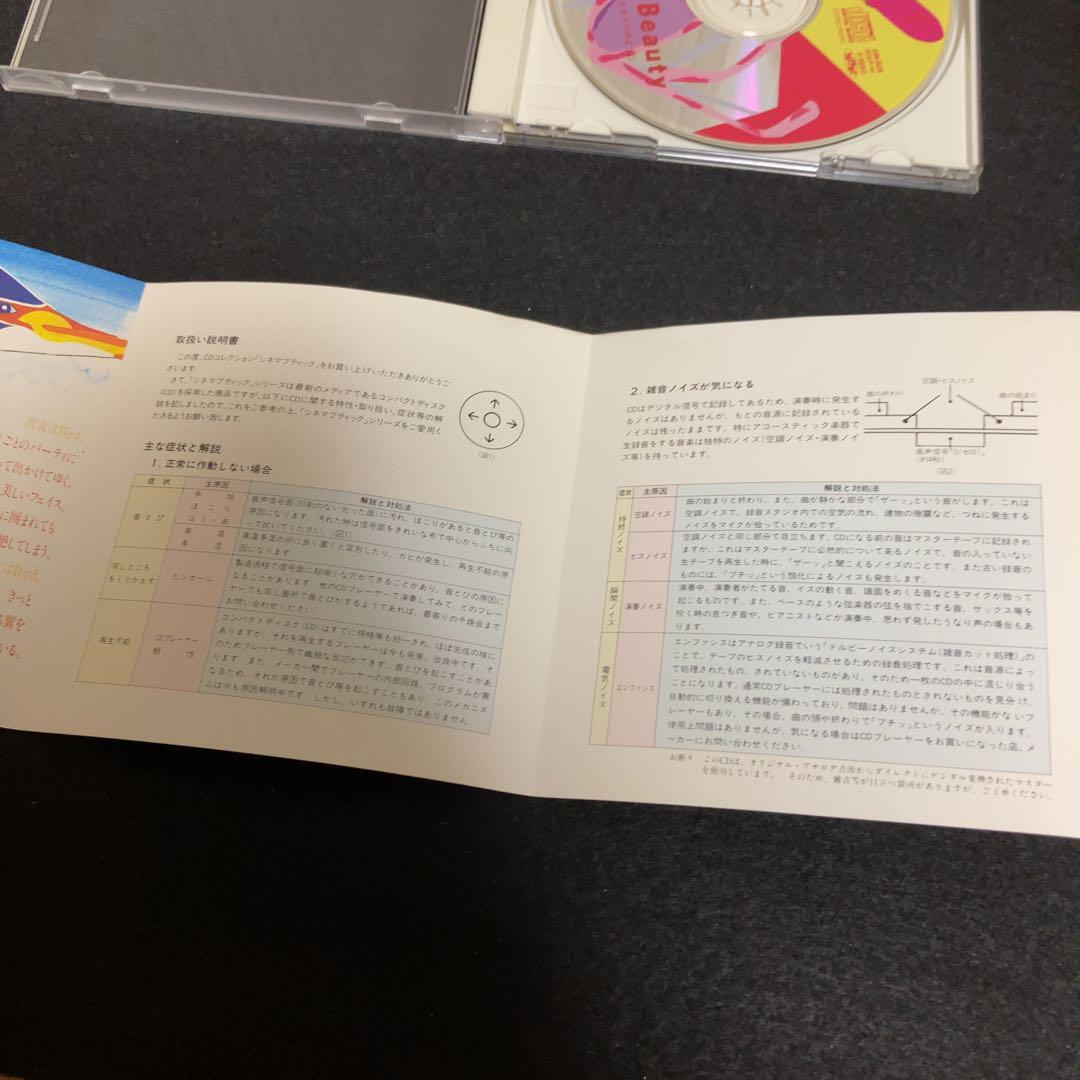 Beauty
彼女はBird,
ごとのパーティに
って出かけてゆく。
美しいフェイス。
に囲まれても
絶してしまう。
はBird,
きっと
る翼を
いる。
取扱い説明書
この度、CDコレクション「シネマブティック」をお買い上げいただきありがとうご
ざいます。
さて、「シネマブティック」シリーズは最新のメディアであるコンパクトディスク
(CD)を採用した商品ですが、以下にCDに関する特性・取り扱い、症状等の解
説を記しましたので、これをご参考の上、「シネマブティック」シリーズをご愛用く
ださるようお願い致します。
(図1)
主な症状と解説
1. 正常に作動しない場合
症状 主原因 解説と対処法
音とび
手垢
ほこり
ゴミ・油
音声信号面(印刷のない光った面)に汚れ、ほこりがあると音とび等の
原因になります。汚れた時は信号面をきれいな布で中心からふちに向
って拭いてください。(図1)
高温
多湿
高温多湿の所に長く置くと変形したり、カビが発生し、再生不能の原
因になります。
同じところ
をくりかえす
ピンホール
製造過程で信号面に超微小な穴ができることがあり、音とびの原因に
なることがあります。他のCDプレーヤーで演奏してみて、どのプレー
ヤーでも同じ箇所で音とびがするようであれば、最寄りの千趣会まで
お問い合わせください。
再生不能
CDプレーヤー
相性
コンパクトディスク(CD)はすでに規格等も統一され、ほぼ完成の域に
ありますが、それを再生するプレーヤーは今も発展、改良中です。そ
のためプレーヤー側で繊細な反応ができず、音とびを起こすことがあ
ります。また、メーカー間でプレーヤーの内部回路、プログラムが異
なるため、それが原因で音とび等を起こすこともあり、このメカニズ
ムは今も原因解明中です。しかし、いずれも故障ではありません。
2. 雑音ノイズが気になる
CDはデジタル信号で記録してあるため、演奏時に発生す
るノイズはありませんが、もとの音源に記録されている
ノイズは残ったままです。特にアコースティック楽器で
生録音をする音楽は独特のノイズ(空調ノイズ・演奏ノイ
ズ等)を持っています。
空調・ヒスノイズ
曲の終わり
曲の始まり
音声信号「0(ゼロ)」
(約4秒)
(図2)
症状 主原因 解説と対処法
持続ノイズ
空調ノイズ
曲の始まりと終わり。また、曲が静かな部分で「ザーッ」という音がします。これは
空調ノイズで、録音スタジオ内での空気の流れ、建物の微震など、つねに発生する
ノイズをマイクが拾っているためです。
ヒスノイズ
空調ノイズと同じ部分で目立ちます。CDになる前の音はマスターテープに記録され
ますが、これはマスターテープに必然的について来るノイズで、音の入っていない
生テープを再生した時に、「ザーッ」と聞こえるノイズのことです。また古い録音の
ものには、「プチッ」という類化によるノイズも発生します。
瞬間ノイズ
演奏ノイズ
演奏中、演奏者がたてる音、イスの動く音、譜面をめくる音などをマイクが拾って
起こるものです。また、ベースのような弦楽器の弦を指でこする音、サックス等を
吹く時の息つぎ音や、ピアニストなどが演奏中、思わず発したうなり声の場合もあ
ります。
電気ノイズ
エンファシス
エンファシスはアナログ録音でいう「ドルビーノイズシステム(雑音カット処理)」の
ことで、テープのヒスノイズを軽減させるための録音処理です。これは音源によっ
て処理されたもの、されていないものがあり、そのため一枚のCDの中に混じり合う
ことになります。通常CDプレーヤーには処理されたものとされないものを見分け、
自動的に切り換える機能が備わっており、問題はありませんが、その機能がないプ
レーヤーもあり、その場合、曲の頭や終わりで「プチッ」というノイズが入ります。
使用上問題はありませんが、気になる場合はCDプレーヤーをお買いになった店、メ
ーカーにお問い合わせください。
お断り：このCDは、オリジナル・アナログ音源からダイレクトにデジタル変換されたマスター
を使用しています。そのため、雑音等が目立つ箇所がありますが、ご了承ください。